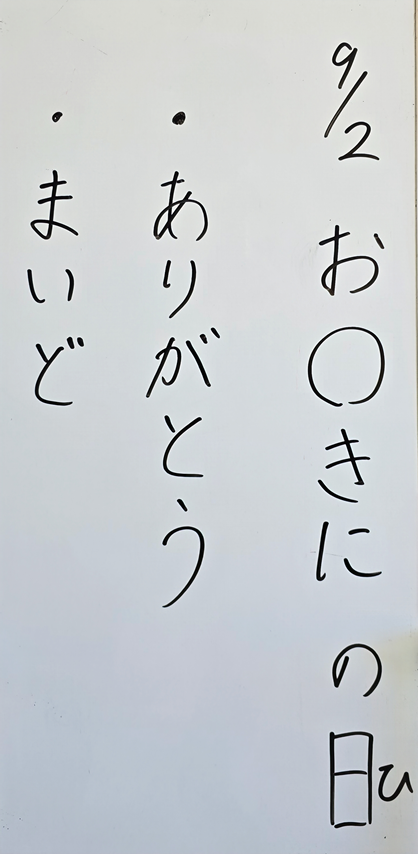 9/2 お〇きにの日ひ
・ありがとう
・まいど